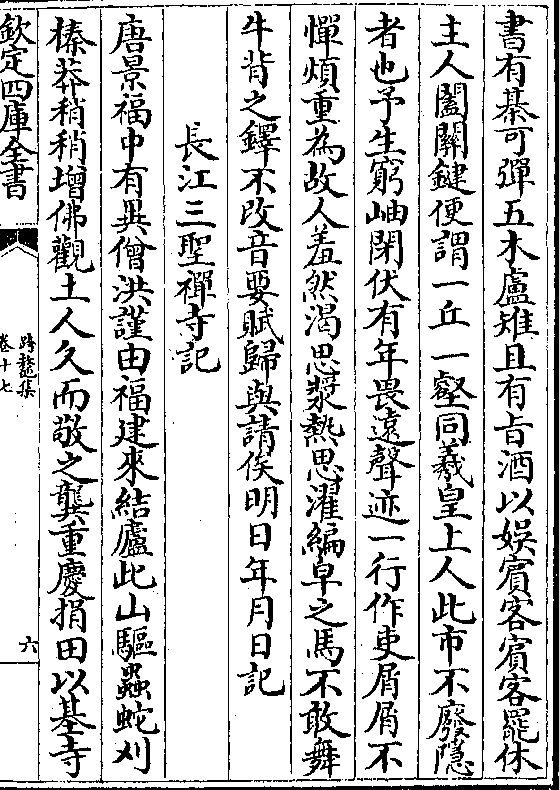 書有棊可彈五木盧雉且有旨酒以娯賓客賓客罷休
主人闔闗鍵便謂一丘一壑同羲皇上人此市不廢隱
者也予生窮岫閉伏有年畏逺聲迹一行作吏屑屑不
憚煩重為故人羞然渴思漿熱思濯編皁之馬不敢舞
牛背之鐸不改音要賦歸與請俟明日年月日記
長江三聖禪寺記
唐景福中有異僧洪謹由福建來結廬此山驅蟲蛇刈
榛莽稍稍増佛觀土人久而敬之龔重慶捐田以基寺
欽定四庫全書
跨鼇集
卷十七
六